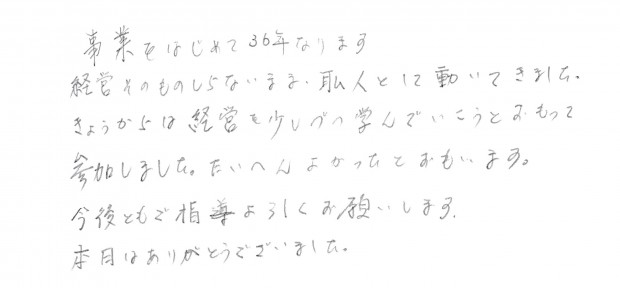 事業をはじめて36年なります
経営そのものしらないまま、職人として動いてきました。
きょうからは経営を少しづつ学んでいこうとおもって
参加しました。たいへんよかったとおもいます。
今後ともご指導よろしくお願いします。
本日はありがとうございました。